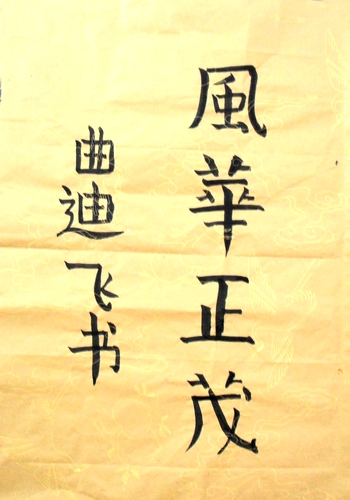 風華正茂
曲迪飞书